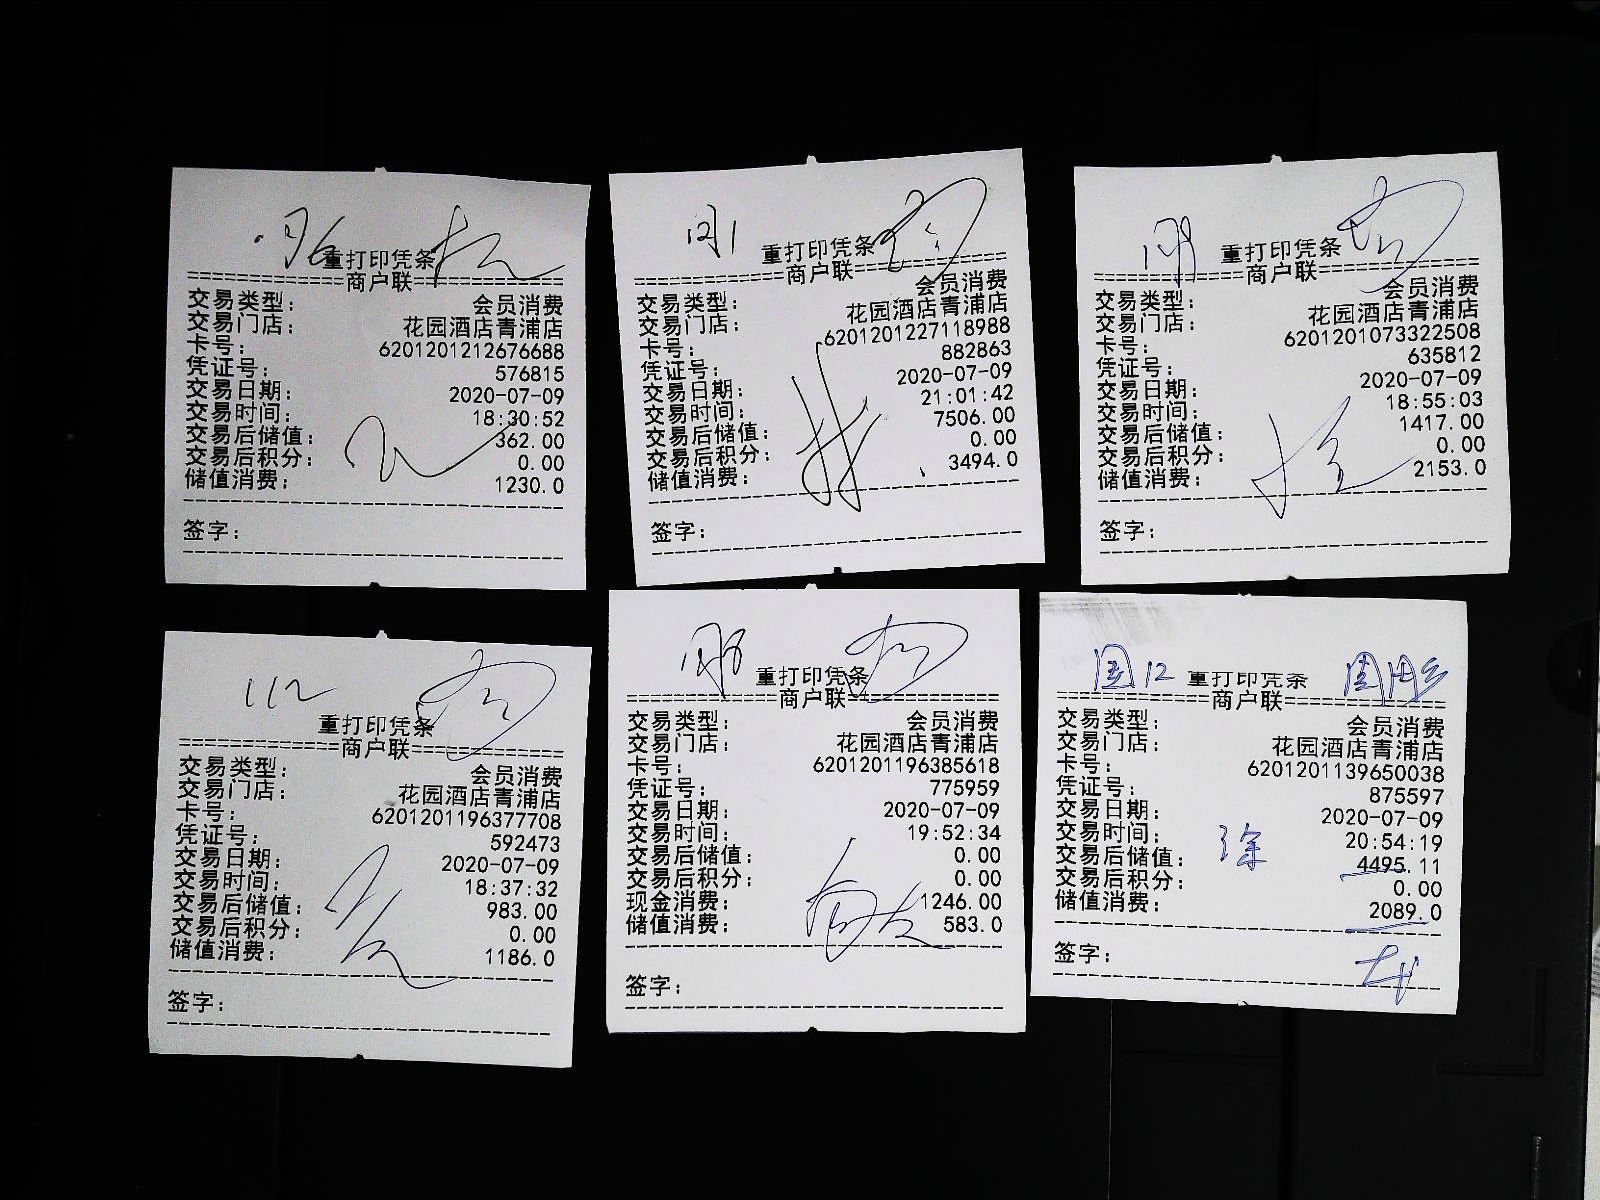 重打印凭条
================商户联================
交易类型: 会员消费
交易门店: 花园酒店青浦店
卡号: 6201201212676688
凭证号: 576815
交易日期: 2020-07-09
交易时间: 18:30:52
交易后储值: 362.00
交易后积分: 0.00
储值消费: 1230.0
签字:
重打印凭条
================商户联================
交易类型: 会员消费
交易门店: 花园酒店青浦店
卡号: 6201201227118988
凭证号: 882863
交易日期: 2020-07-09
交易时间: 21:01:42
交易后储值: 7506.00
交易后积分: 0.00
储值消费: 3494.0
签字:
重打印凭条
================商户联================
交易类型: 会员消费
交易门店: 花园酒店青浦店
卡号: 6201201073322508
凭证号: 635812
交易日期: 2020-07-09
交易时间: 18:55:03
交易后储值: 1417.00
交易后积分: 0.00
储值消费: 2153.0
签字:
112
重打印凭条
================商户联================
交易类型: 会员消费
交易门店: 花园酒店青浦店
卡号: 6201201196377708
凭证号: 592473
交易日期: 2020-07-09
交易时间: 18:37:32
交易后储值: 983.00
交易后积分: 0.00
储值消费: 1186.0
签字:
重打印凭条
================商户联================
交易类型: 会员消费
交易门店: 花园酒店青浦店
卡号: 6201201196385618
凭证号: 775959
交易日期: 2020-07-09
交易时间: 19:52:34
交易后储值: 0.00
交易后积分: 0.00
现金消费: 1246.00
储值消费: 583.0
签字:
12 重打印凭条
================商户联================
交易类型: 会员消费
交易门店: 花园酒店青浦店
卡号: 6201201139650038
凭证号: 875597
交易日期: 2020-07-09
交易时间: 20:54:19
交易后储值: 4495.11
交易后积分: 0.00
储值消费: 2089.0
徐
签字: